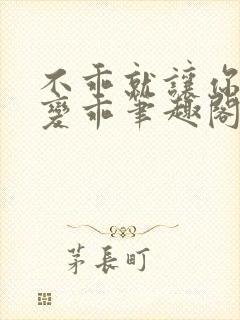 不乖就讓你
變乖筆趣閣
茅長町